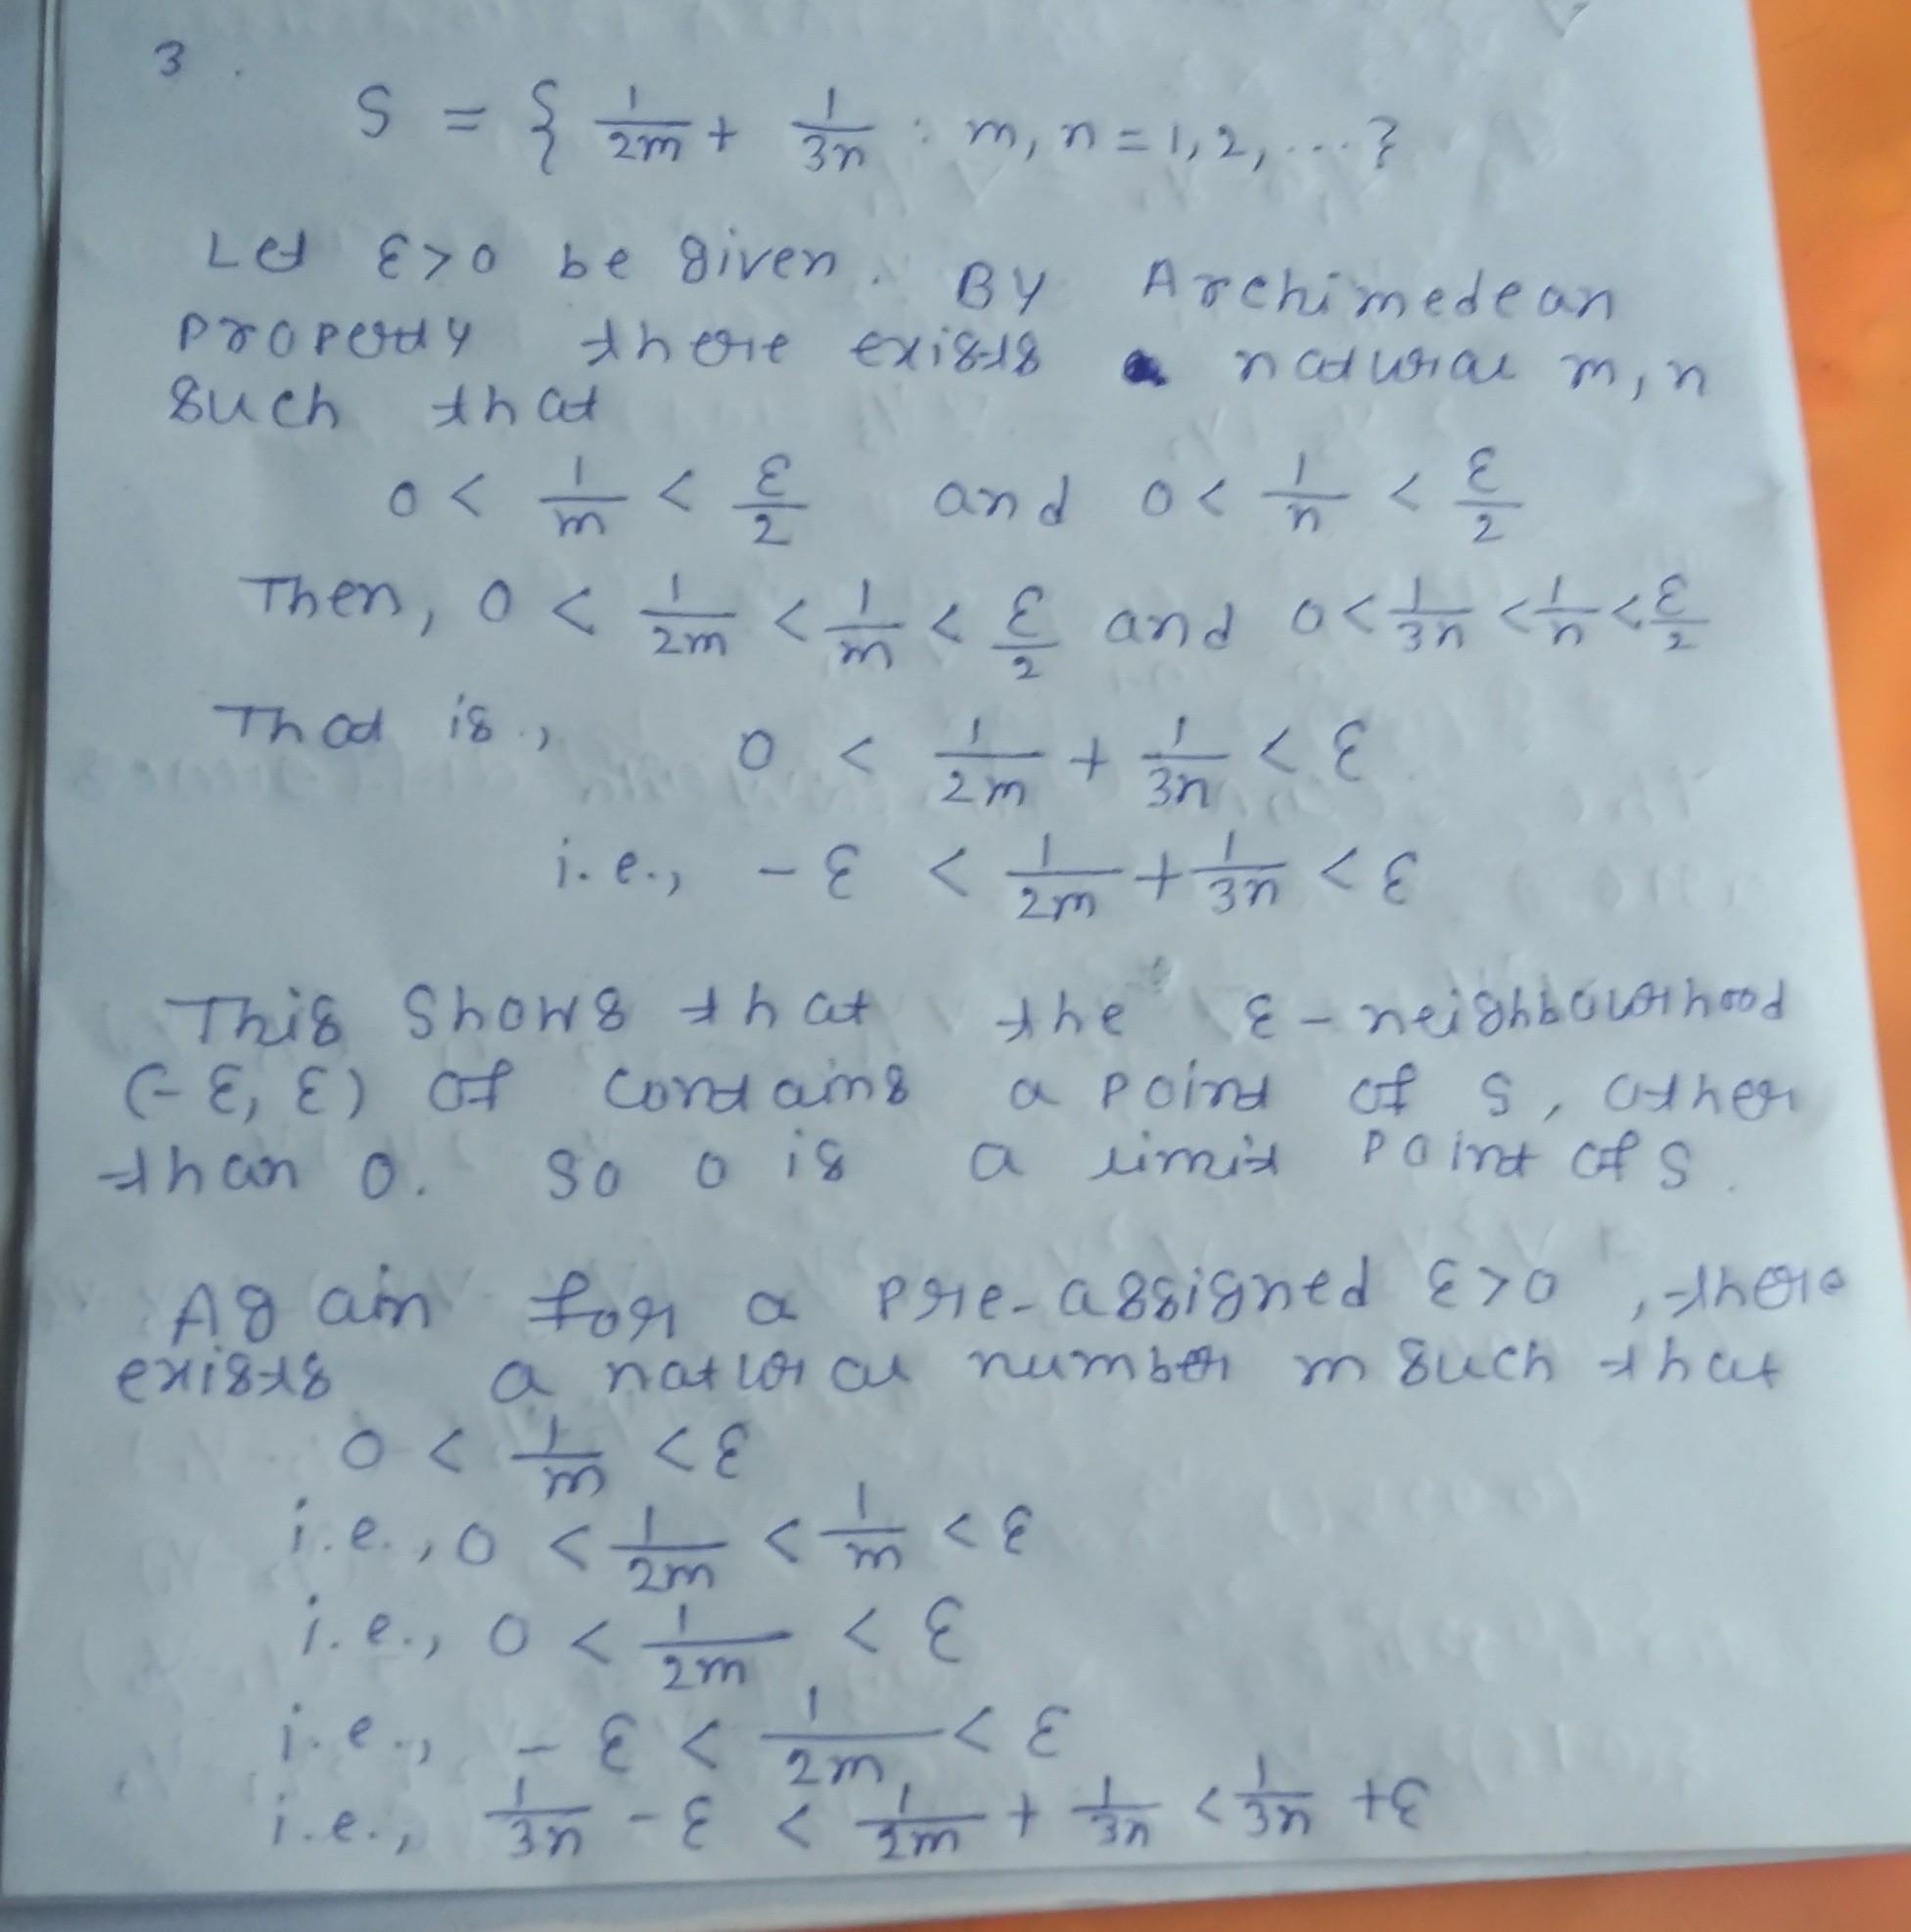 3.
S = { 1/2m + 1/3n : m, n = 1, 2, ... }
Let ε > 0 be given. By Archimedean
property there exists natural m, n
such that
0 < 1/m < ε/2 and 0 < 1/n < ε/2
Then, 0 < 1/2m < 1/m < ε/2 and 0 < 1/3n < 1/n < ε/2
That is, 0 < 1/2m + 1/3n < ε
i.e., -ε < 1/2m + 1/3n < ε
This shows that the ε-neighbourhood
(-ε, ε) of contains a point of S, other
than 0. So 0 is a limit point of S.
Again for a pre-assigned ε > 0, there
exists a natural number m such that
0 < 1/m < ε
i.e., 0 < 1/2m < 1/m < ε
i.e., 0 < 1/2m < ε
i.e., -ε < 1/2m < ε
i.e., 1/3n - ε < 1/2m + 1/3n < 1/3n + ε